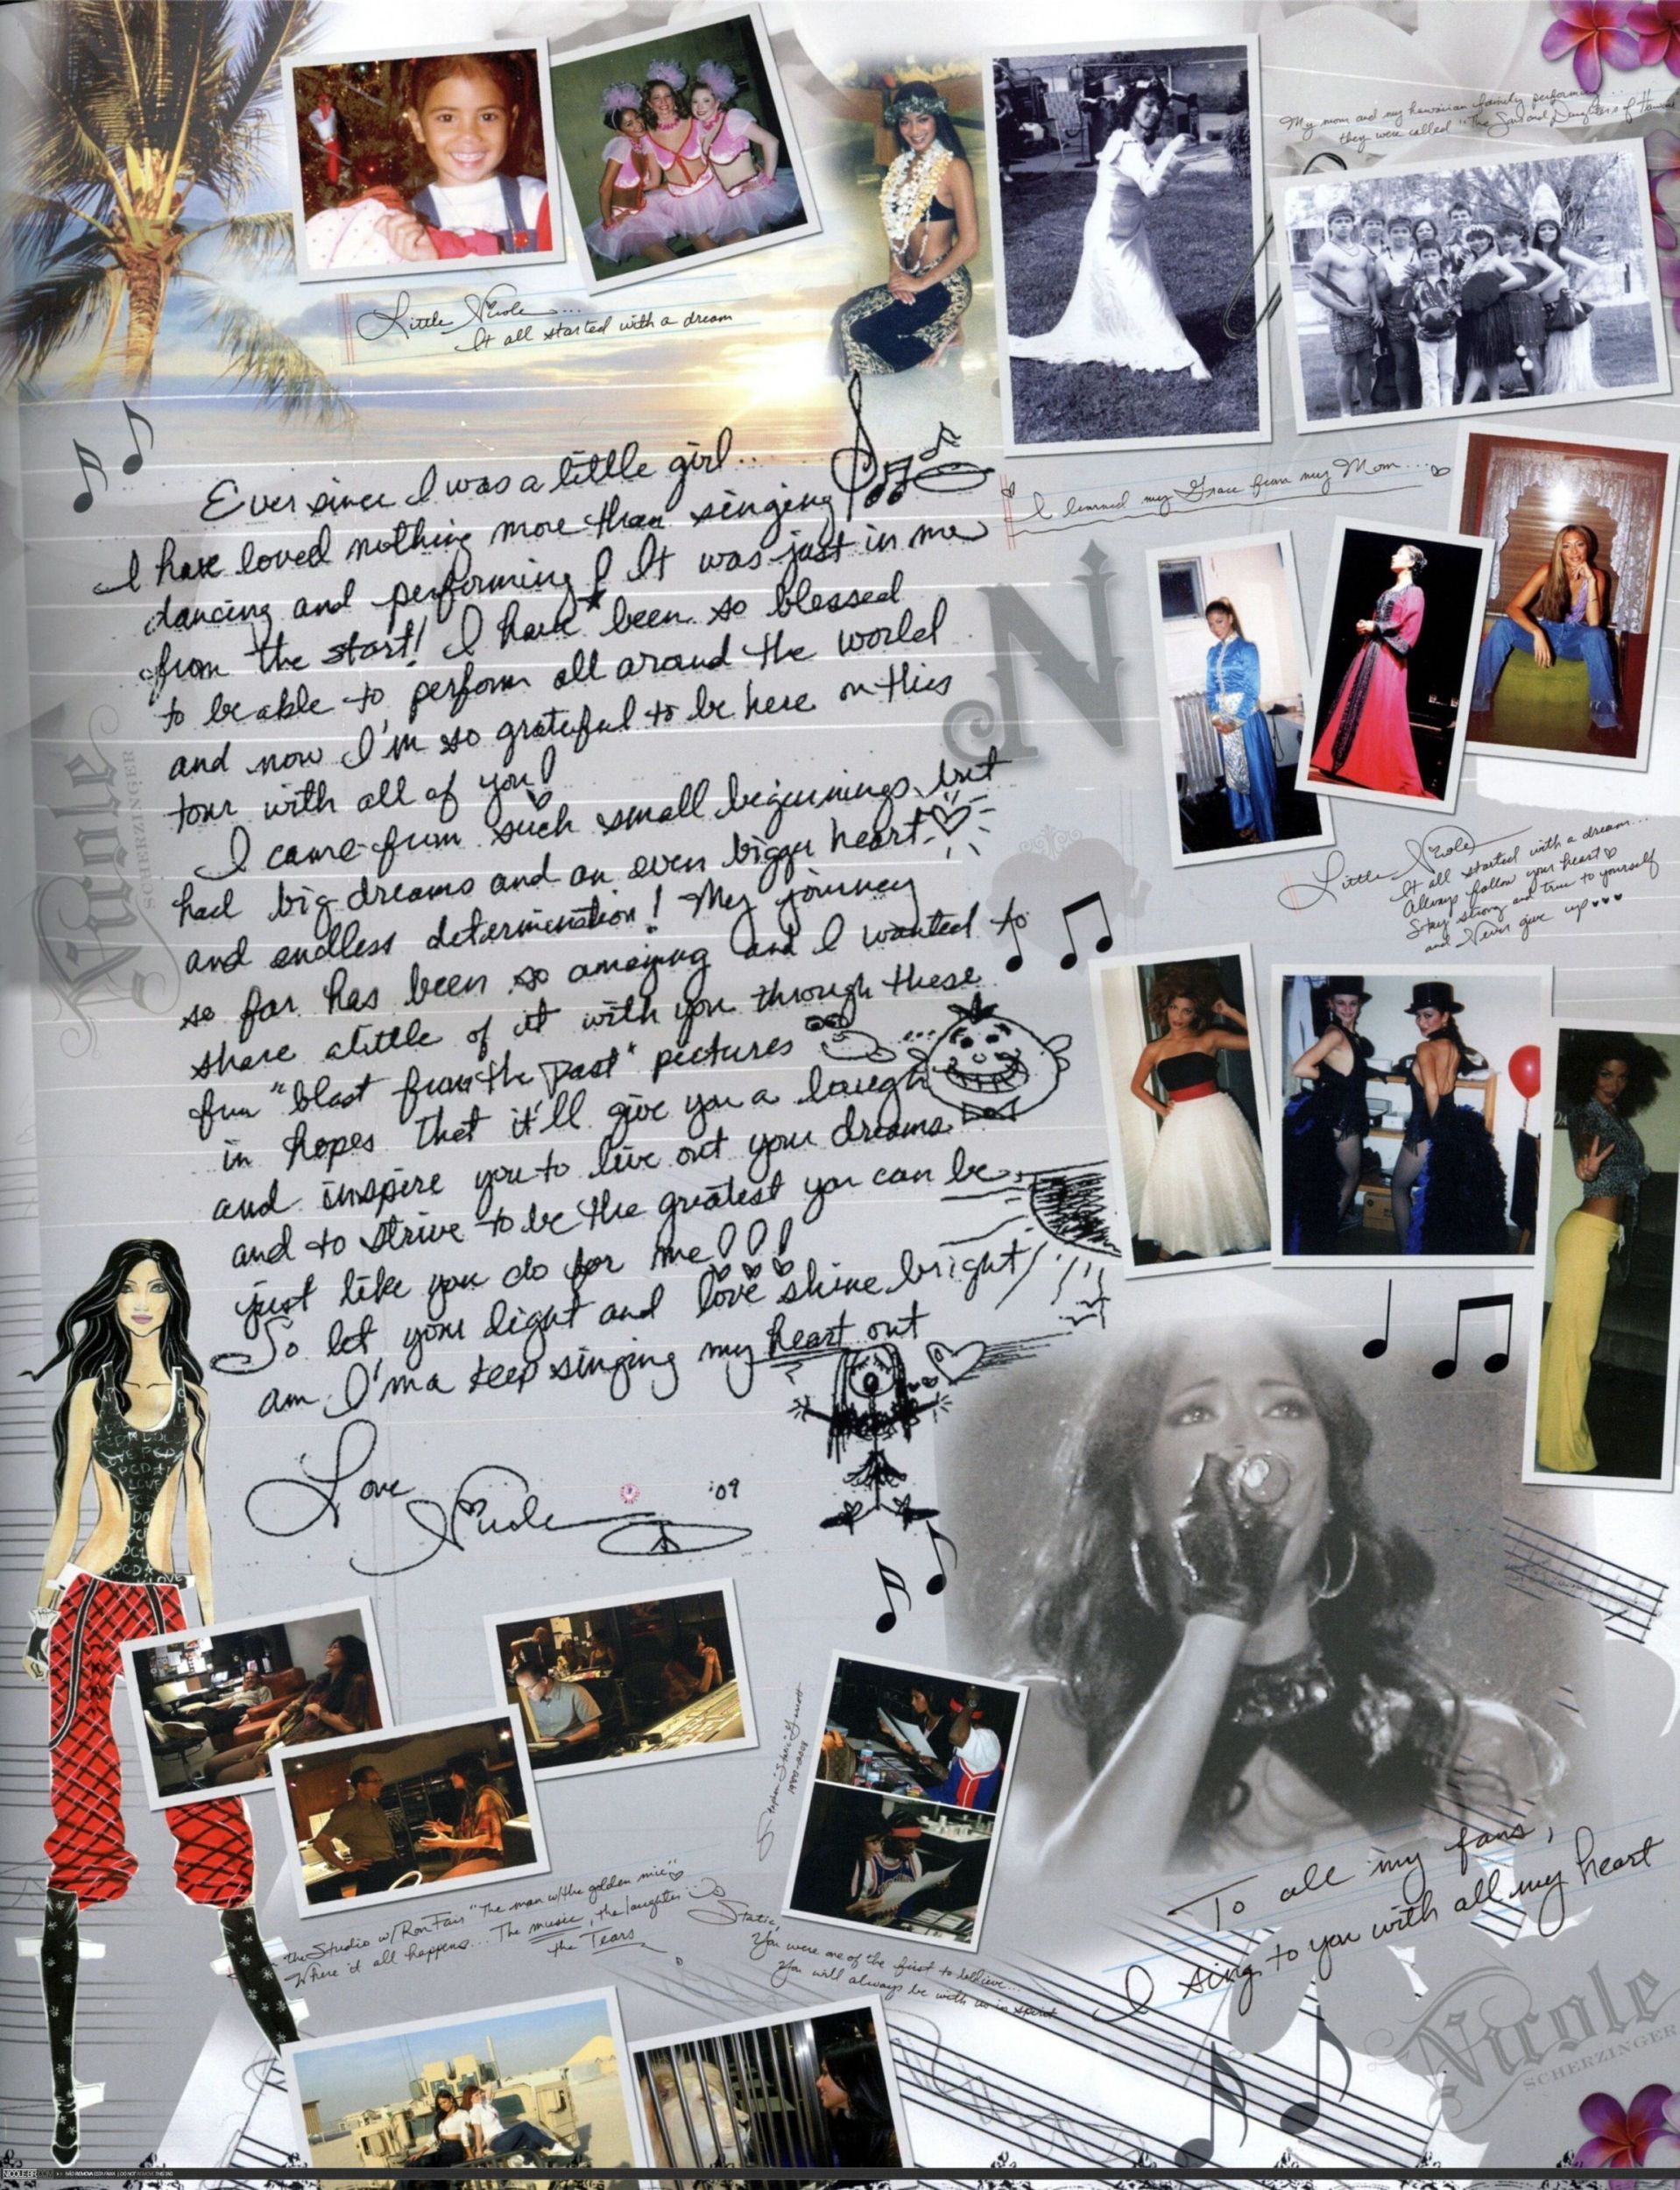 My mom and my hawaiian family performing...
they were called "The Sons and Daughters of Hawaii
Little Nicole...
It all started with a dream
I learned my Grace from my Mom...
Ever since I was a little girl...
I have loved nothing more than singing
dancing and performing! It was just in me
from the start! I have been so blessed
to be able to perform all around the world
and now I'm so grateful to be here on this
tour with all of you!
I came from such small beginnings, but
had big dreams and an even bigger heart
and endless determination! My journey
so far has been so amazing and I wanted to
share alittle of it with you through these
fun "blast from the past" pictures
in hopes that it'll give you a laugh
and inspire you to live out your dreams
and to strive to be the greatest you can be
just like you do for me!!!
So let your light and love shine bright
am I'ma keep singing my heart out
Love
Nicole '09
N
Nicole
SCHERZINGER
Little Nicole
It all started with a dream...
Always follow your heart
Stay strong and true to yourself
and Never give up
the Studio w/Ron Fair "The man w/the golden mic"
Where it all happens... The music, the laughter
the Tears
Stephen "Static" Garrett
Static,
You were one of the first to believe...
You will always be with us in spirit
To all my fans,
I sing to you with all my heart
Nicole
SCHERZINGER